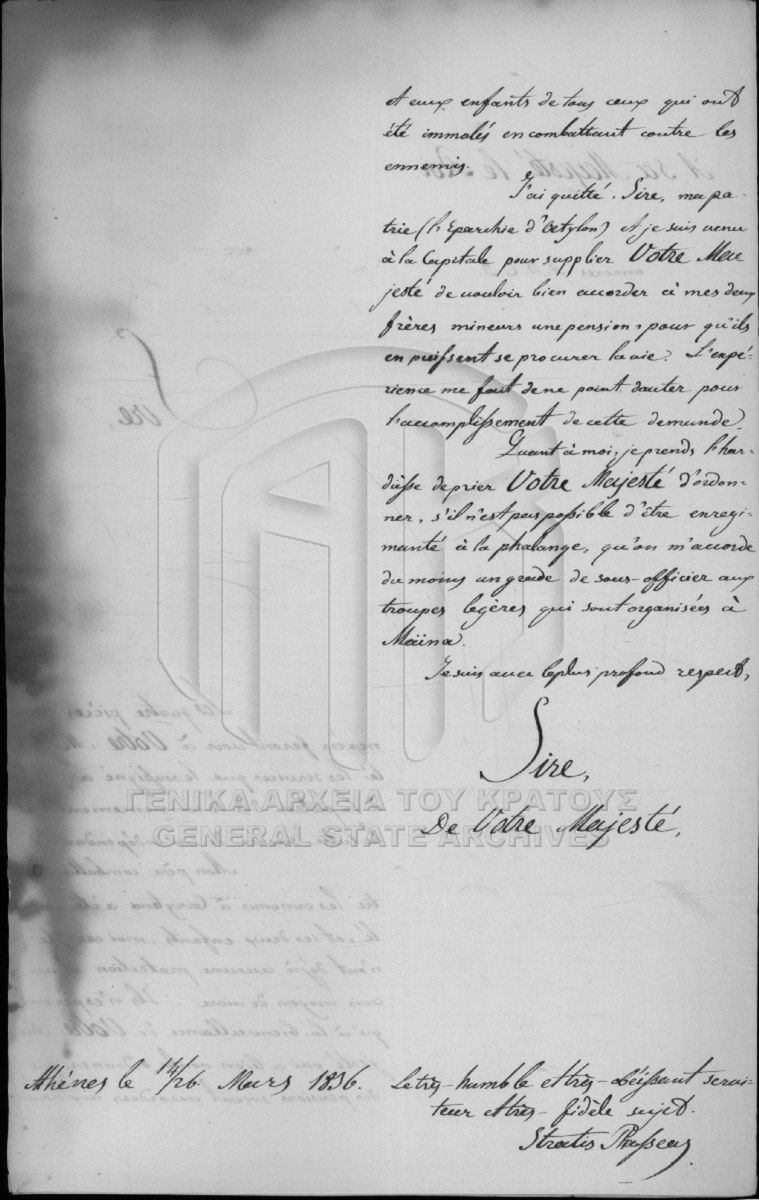 et aux enfants de tous ceux qui ont
été immolés en combattant contre les
ennemis.
J'ai quitté, Sire, ma pa-
trie (l'Eparchie d'Oetylon) et je suis venu
à la Capitale pour supplier Votre Ma
jesté de vouloir bien accorder à mes deux
frères mineurs une pension, pour qu'ils
en puissent se procurer la vie. L'expé-
rience me fait de ne point douter pour
l'accomplissement de cette demande.
Quant à moi, je prends l'har-
diesse de prier Votre Majesté d'ordon-
ner, s'il n'est pas possible d'être enregi-
menté à la phalange, qu'on m'accorde
du moins un grade de sous-officier aux
troupes légères qui sont organisées à
Maïna.
Je suis avec le plus profond respect,
Sire,
De Votre Majesté,
ΓΕΝΙΚΑ ΑΡΧΕΙΑ ΤΟΥ ΚΡΑΤΟΥΣ
GENERAL STATE ARCHIVES
Athénes le 14/26 Mars 1836.
Le très-humble et très-obéissant servi-
teur et très-fidèle sujet.
Stratis